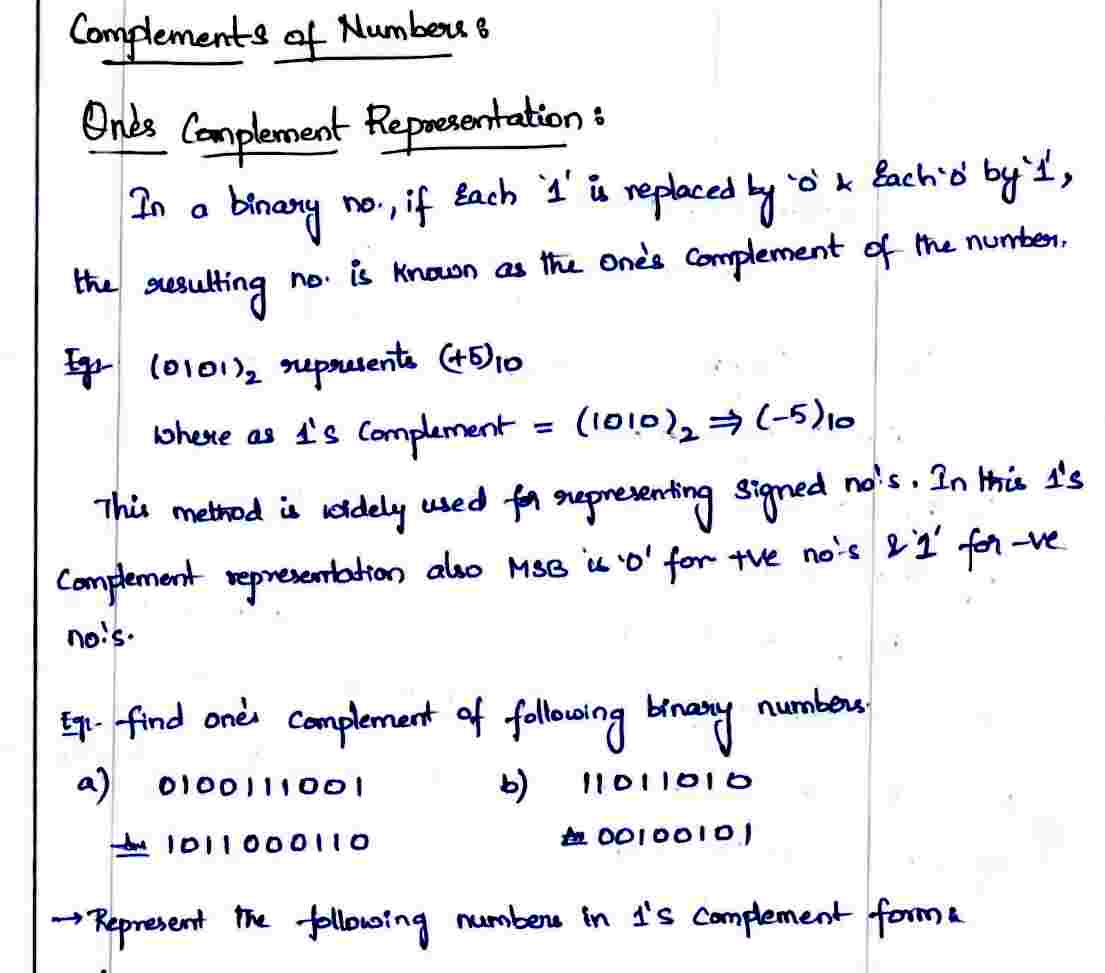 Complements of Numbers :
One's Complement Representation :
In a binary no., if Each '1' is replaced by '0' & Each '0' by '1',
the resulting no. is known as the one's complement of the number.
Eg:- (0101)₂ represents (+5)₁₀
where as 1's Complement = (1010)₂ ⇒ (-5)₁₀
This method is widely used for representing signed no's. In this 1's
Complement representation also MSB is '0' for +ve no's & '1' for -ve
no's.
Eg:- find one's complement of following binary numbers.
a) 0100111001 b) 11011010
Ans 1011000110 Ans 00100101
→ Represent the following numbers in 1's complement form :